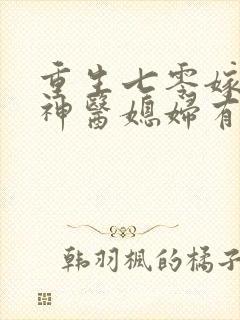 重生七零嫁
神醫媳婦有
韩羽楓的橘子